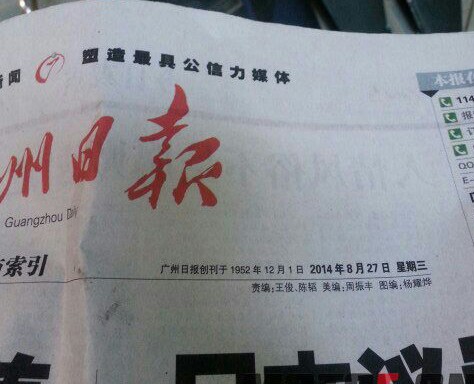 闻 塑造最具公信力媒体
州日报
Guangzhou Daily
索引
广州日报创刊于1952年12月1日 2014年8月27日 星期三
责编:王俊、陈韬 美编:周振丰 图编:杨耀烨
本报
114
报
QQ
E-